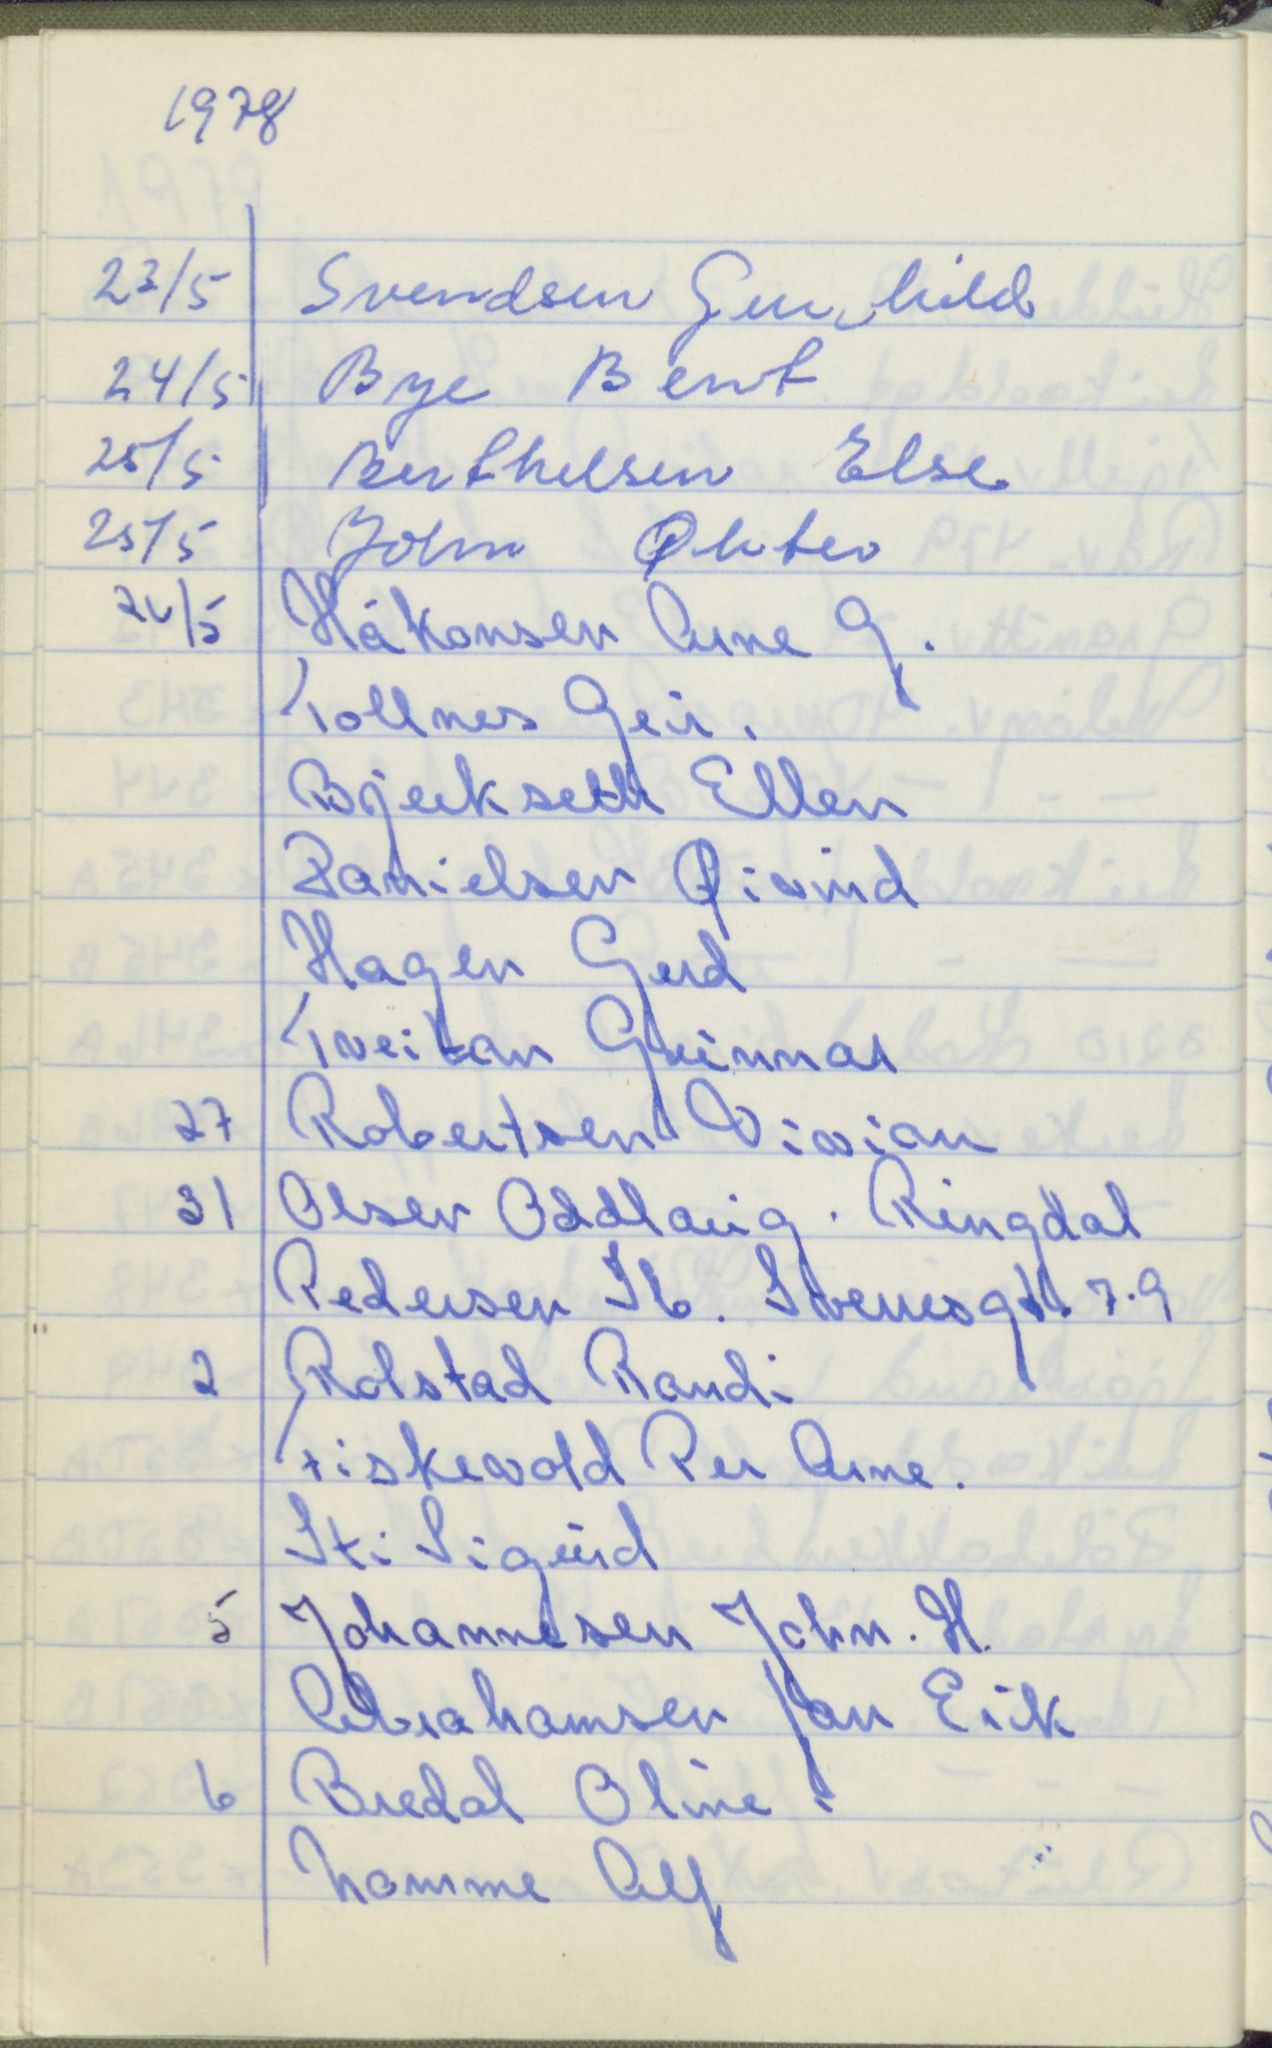 1978
23/5 Svendsen Gunhild
24/5 Bye Bent
25/5 Berthelsen Else
25/5 John Økter
26/5 Håkonsen Arne G.
Tollnes Geir.
Bjerkseth Ellen
Danielsen Øivind
Hagen Gerd
Tveitan Gunnar
27 Robertsen Vivian
31 Olsen Oddlaug. Ringdal
Pedersen Ib. Sverresgt. 7.9
2 Rolstad Randi
Fiskevold Per Arne.
Sti Sigurd
5 Johannesen John. H.
Abrahamsen Jan Erik
6 Bredal Oline.
Lomme Alf